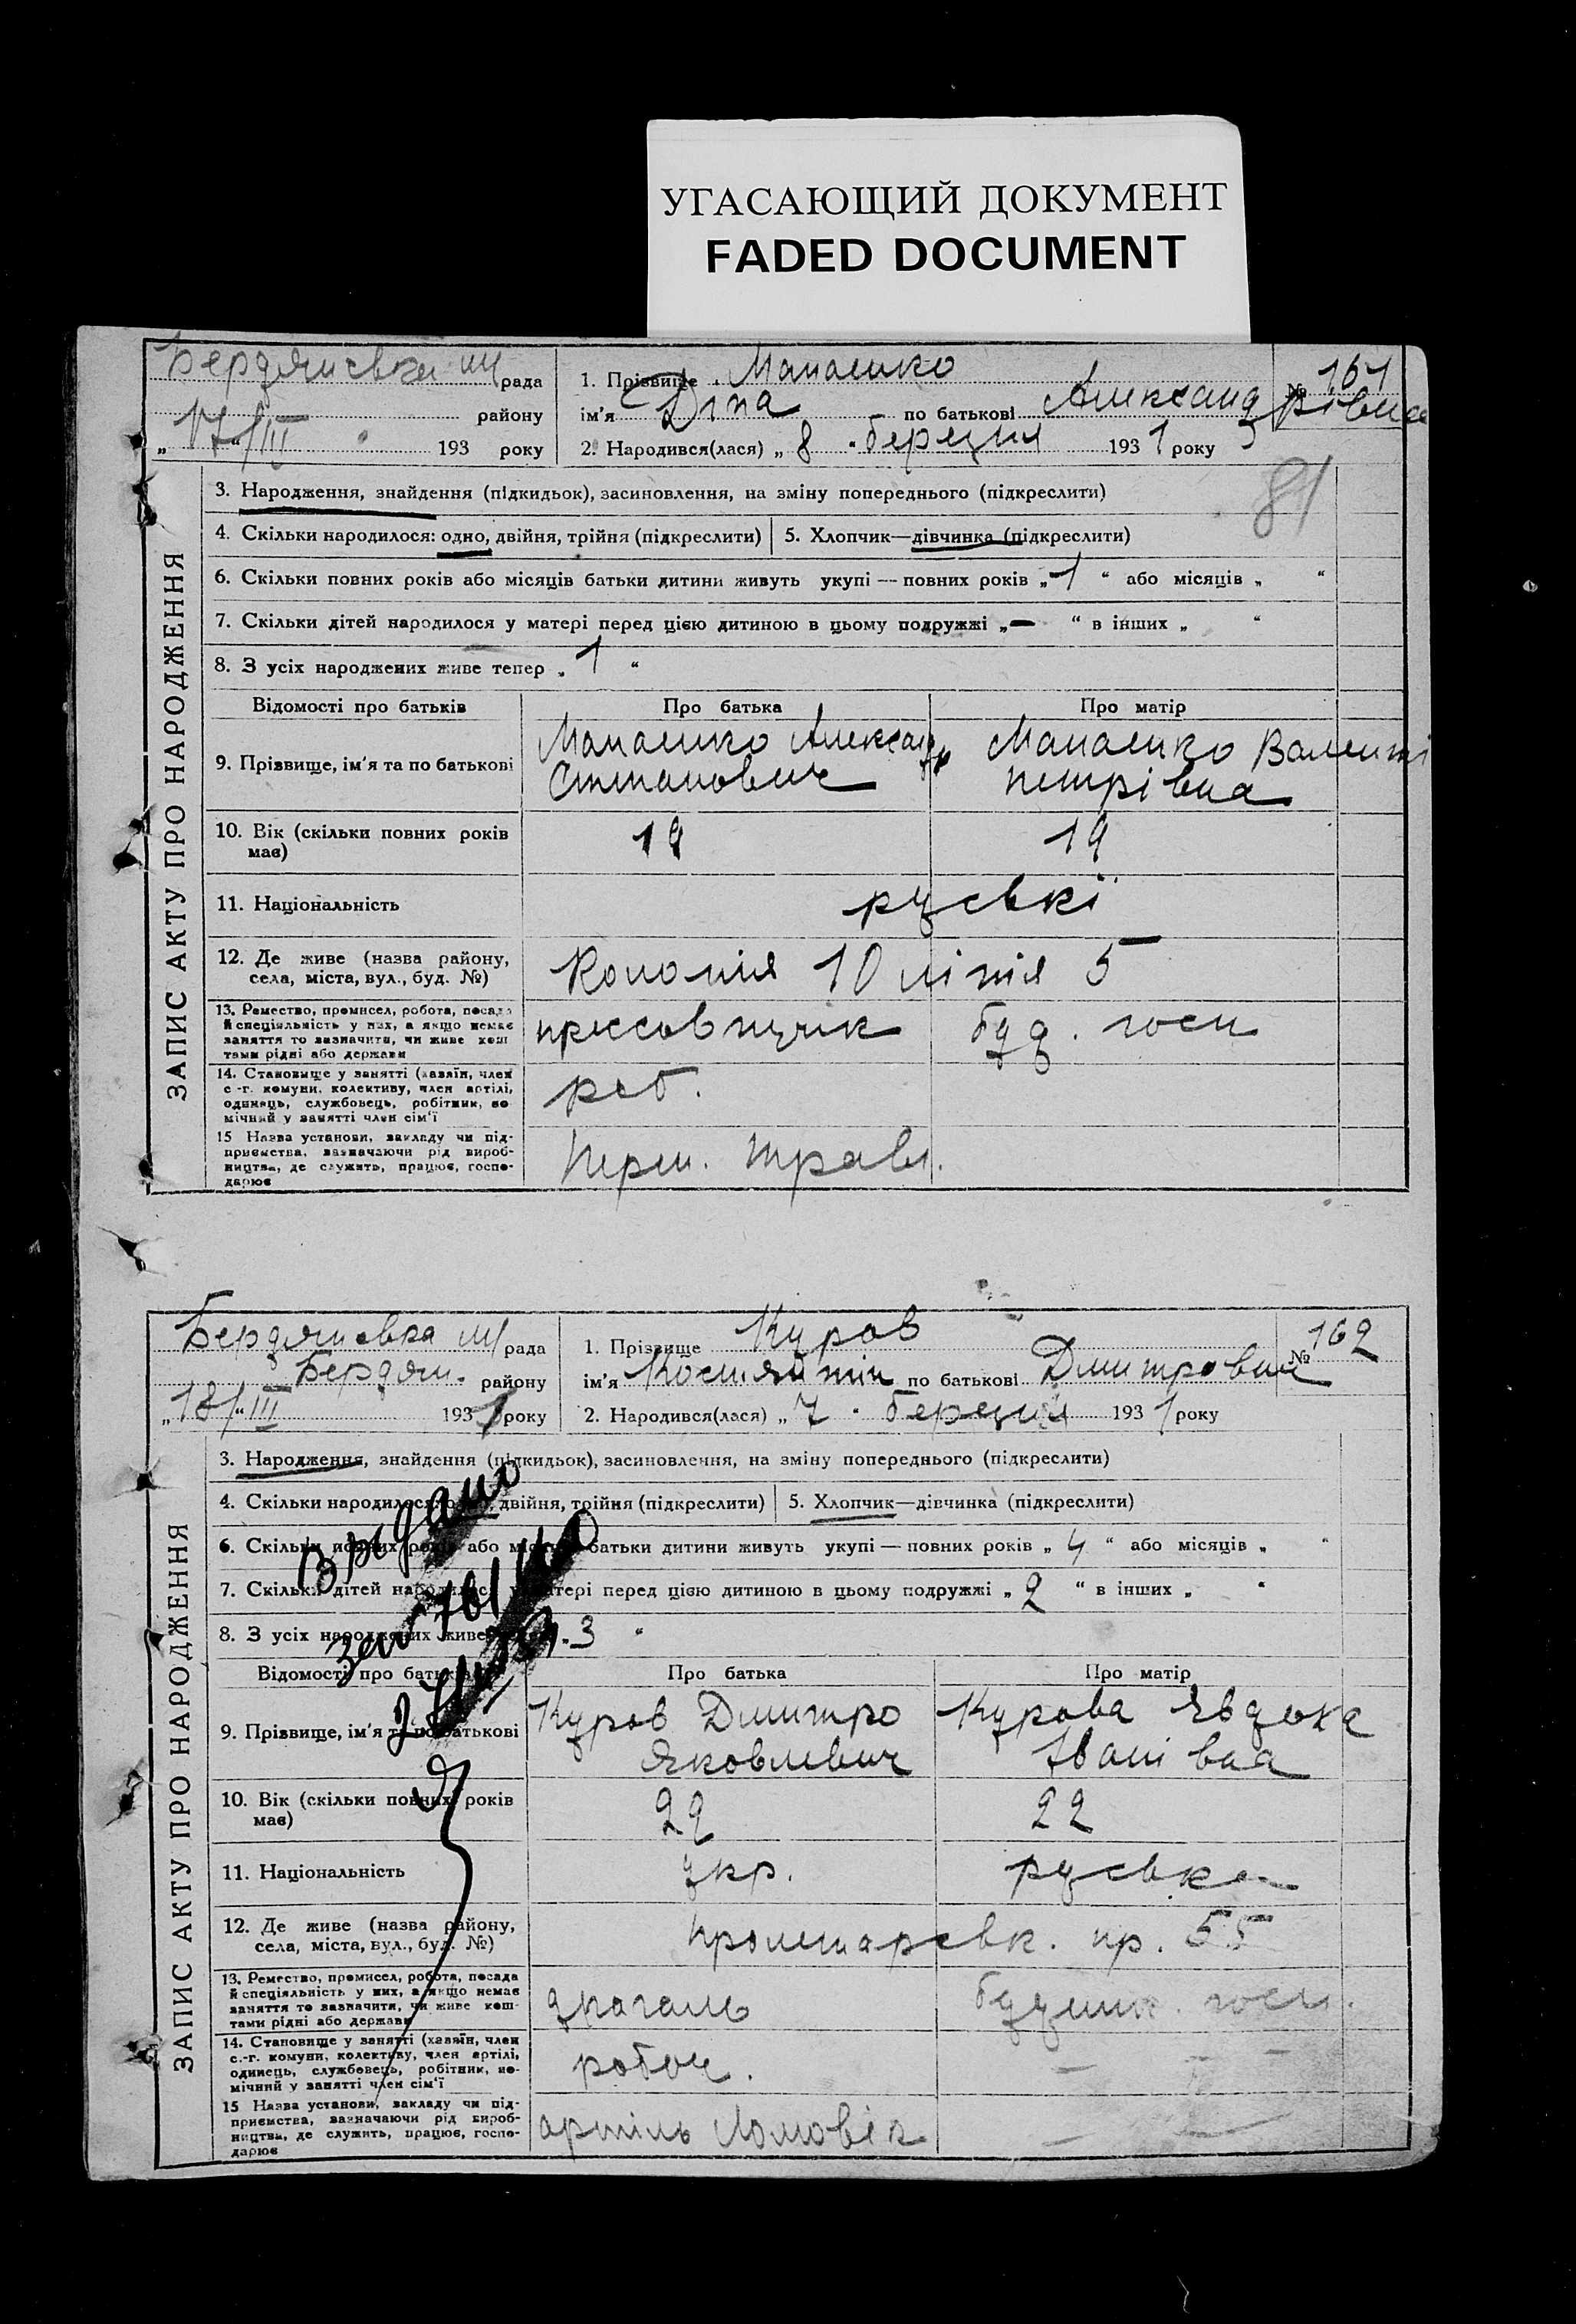 УГАСАЮЩИЙ ДОКУМЕНТ
FADED DOCUMENT
ЗАПИС АКТУ ПРО НАРОДЖЕННЯ
Бердянська рада
району
„17/III 193 року
№ 161
1. Прізвище
ім'я Діна по батькові Александрівна
2. Народився(лася) „8 березня 1931 року
81
3. Народження, знайдення (підкидьок), засиновлення, на зміну попереднього (підкреслити)
4. Скільки народилося: одно, двійня, трійня (підкреслити) 5. Хлопчик—дівчинка (підкреслити)
6. Скільки повних років або місяців батьки дитини живуть укупі — повних років „1“ або місяців „ “
7. Скільки дітей народилося у матері перед цією дитиною в цьому подружжі „—“ в інших „ “
8. З усіх народжених живе тепер „1“
Відомості про батьків Про батька Про матір
9. Прізвище, ім'я та по батькові
Александр
Степанович
Петрівна
10. Вік (скільки повних років має) 19 19
11. Національність руські
12. Де живе (назва району, села, міста, вул., буд. №) Колонія 10 лінія 5
13. Ремество, промисел, робота, посада й спеціяльність у них, а якщо немає заняття то зазначити, чи живе коштами рідні або держави
прессовщик буд. госп
14. Становище у занятті (хазяїн, член с.-г. комуни, колективу, член артілі, одинець, службовець, робітник, помічний у занятті член сім'ї
роб.
15 Назва установи, закладу чи підприємства, зазначаючи рід виробництва, де служить, працює, господарює
Перш. травн.
ЗАПИС АКТУ ПРО НАРОДЖЕННЯ
Бердянська рада
Бердян. району
„18/III 1931 року
№ 162
1. Прізвище Куров
ім'я Костянтин по батькові Дмитрович
2. Народився(лася) „7. березня 1931 року
3. Народження, знайдення (підкидьок), засиновлення, на зміну попереднього (підкреслити)
4. Скільки народилося: одно, двійня, трійня (підкреслити) 5. Хлопчик—дівчинка (підкреслити)
6. Скільки повних років або місяців батьки дитини живуть укупі — повних років „4“ або місяців „ “
7. Скільки дітей народилося у матері перед цією дитиною в цьому подружжі „2“ в інших „ “
8. З усіх народжених живе тепер „3“
Відомості про батьків Про батька Про матір
9. Прізвище, ім'я та по батькові
Куров Дмитро
Яковлевич
Курова Явдоха
Іванівна
10. Вік (скільки повних років має) 22 22
11. Національність укр. руська
12. Де живе (назва району, села, міста, вул., буд. №) Пролетарськ. пр. 55
13. Ремество, промисел, робота, посада й спеціяльність у них, а якщо немає заняття то зазначити, чи живе коштами рідні або держави
драгаль будинк. госп.
14. Становище у занятті (хазяїн, член с.-г. комуни, колективу, член артілі, одинець, службовець, робітник, помічний у занятті член сім'ї
робоч. —
15 Назва установи, закладу чи підприємства, зазначаючи рід виробництва, де служить, працює, господарює
артіль Ломовік —